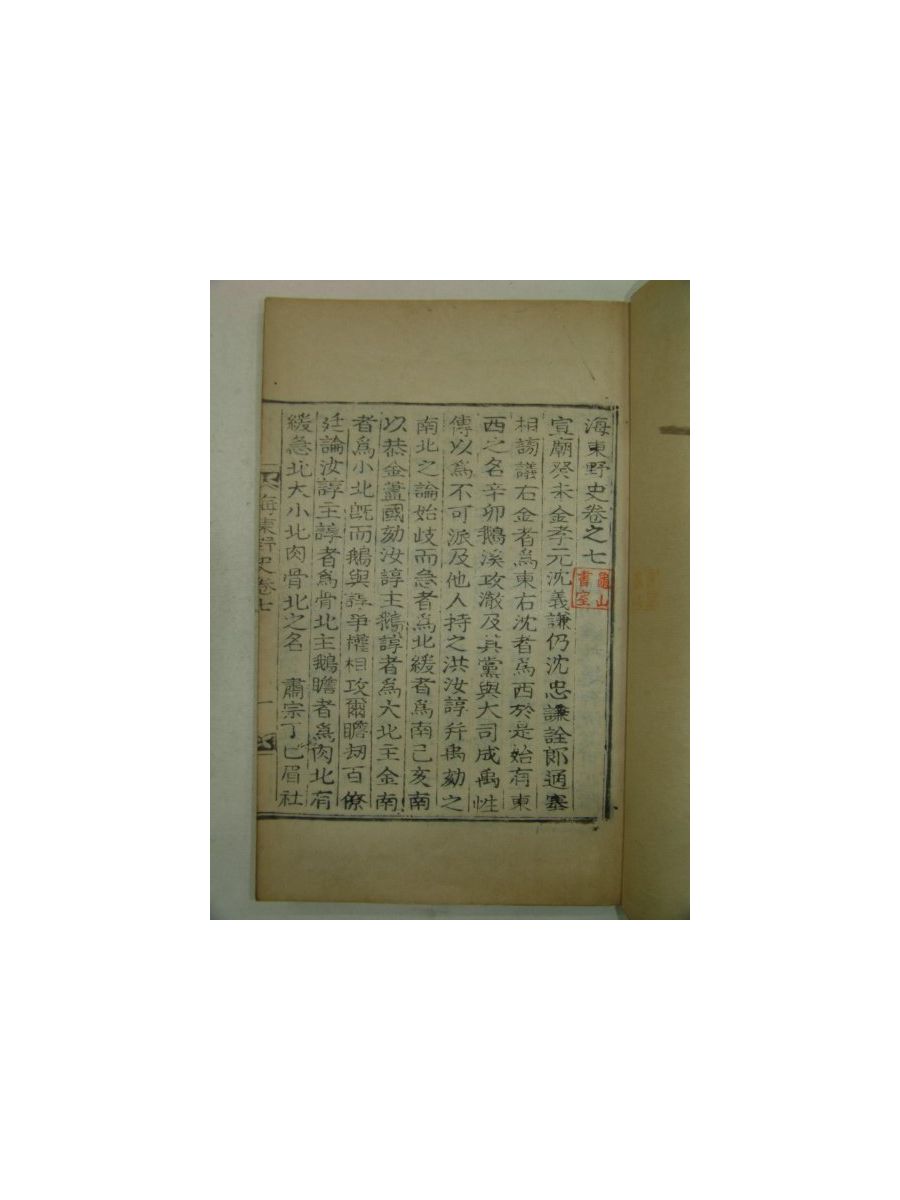 海東野史卷之七
龜山書室
宣廟癸未金孝元沈義謙仍沈忠謙詮郎通塞
相謗議右金者爲東右沈者爲西於是始有東
西之名辛卯鵝溪攻澈及其黨與大司成禹性
傳以爲不可派及他人持之洪汝諄幷禹劾之
南北之論始歧而急者爲北緩者爲南己亥南
以恭金藎國劾汝諄主鵝諄者爲大北主金南
者爲小北旣而鵝與諄爭權相攻爾瞻刼百僚
廷論汝諄主諄者爲骨北主鵝瞻者爲肉北有
緩急北大小北肉骨北之名 肅宗丁巳眉社
海東野史卷七 一